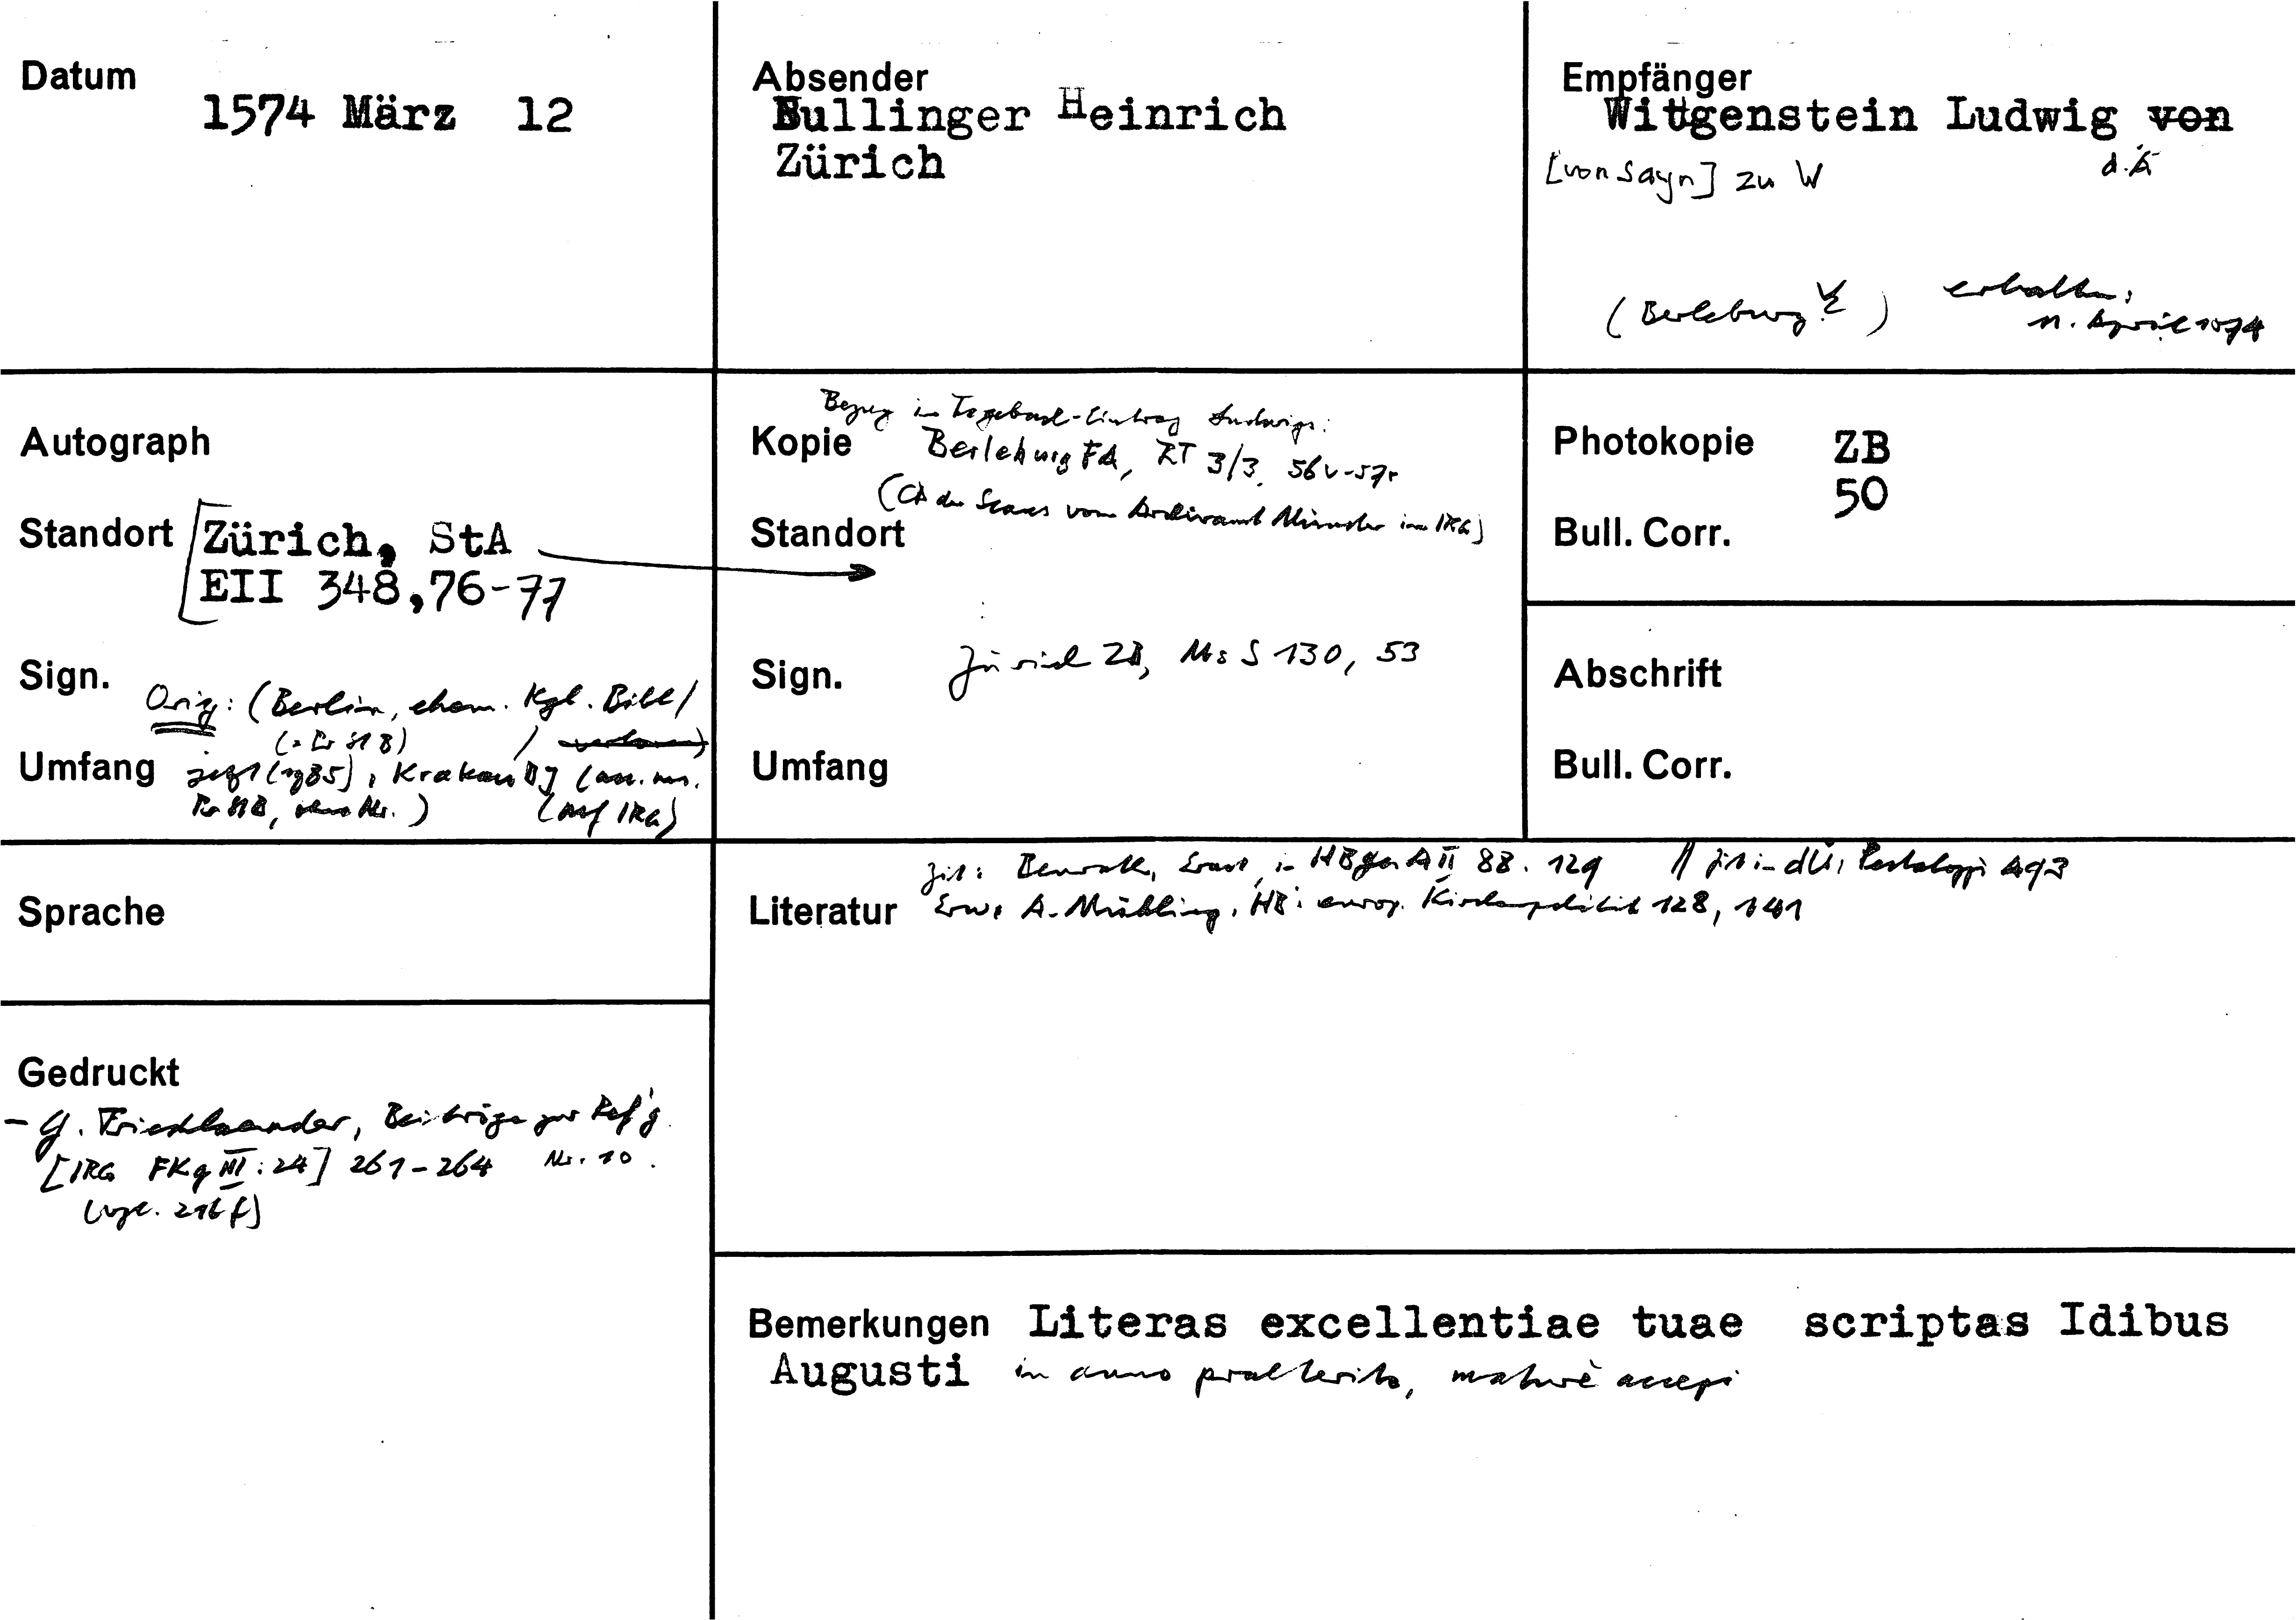 Datum
1574 März 12
Absender
Bullinger Heinrich
Zürich
Empfänger
Wittgenstein Ludwig von
[von Sayn] zu W d.Ä
(Berleburg) erhalten:
11. April 1574
Autograph
Standort
Zürich, StA
EII 348,76-77
Sign.
Orig: (Berlin, ehem. Kgl. Bibl /
Umfang
jetzt (1985), Krakau BJ
(auf IRG)
Bezug in Tagebuch-Eintrag Ludwigs:
Kopie
Berleburg FA, RT 3/3, 56v-57r
(CD der Scans vom Archivamt Münster im IRG)
Standort
Sign.
Zürich ZB, Ms S 130, 53
Umfang
Photokopie ZB
50
Bull. Corr.
Abschrift
Bull. Corr.
Sprache
Literatur
zit: Benrath, Ernst, in HBGesA II 88. 129 // zit in dÜ, Pestalozzi 493
Erw: A. Mühling, HB: europ. Kirchenpolitik 128, 141
Gedruckt
- G. Friedlaender, Beiträge zur Ref'g
[IRG FKg III:24] 261-264 Nr. 10.
(vgl. 216 f)
Bemerkungen Literas excellentiae tuae scriptas Idibus
Augusti in anno praeterito, maturè accepi